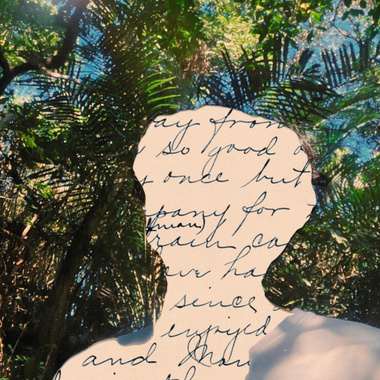 ay from
so good
once but
pany for
rain ca
ve ha
since
enjoyed
and